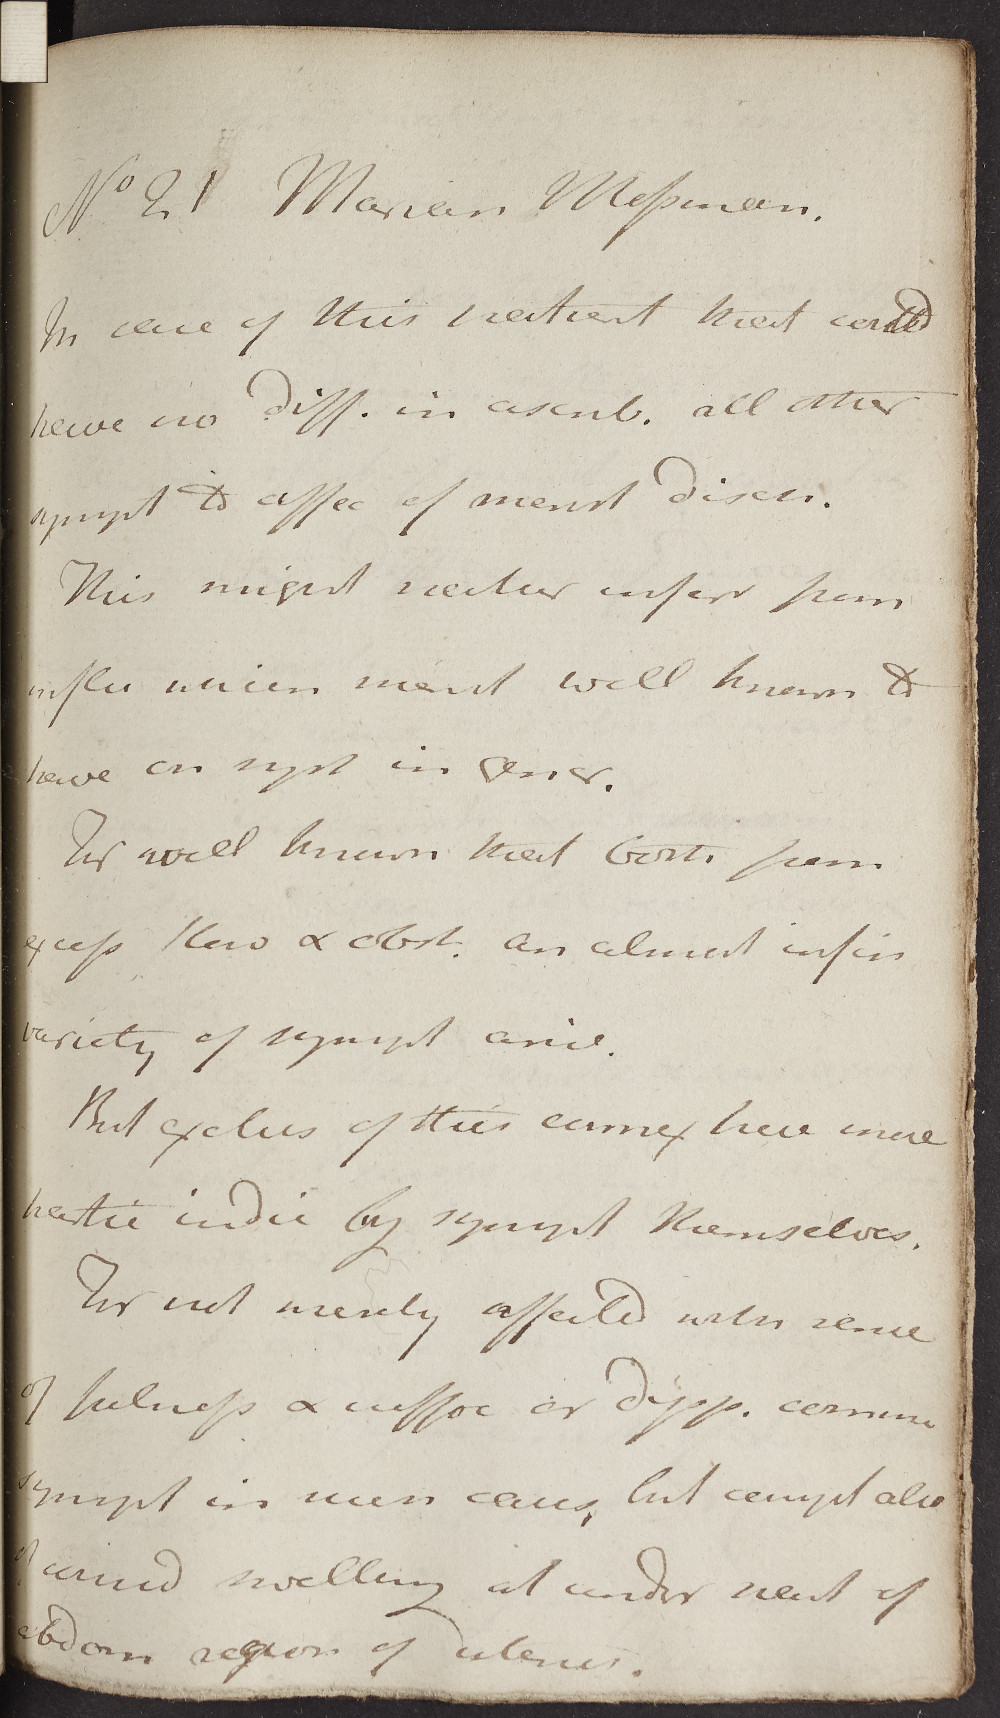 No 21 Marian Messman.
In case of this patient that could
have no diff. in ascrib. all other
sympt to affec of menst disch.
This might rather infer from
influ which menst well known to
have on syst in gener.
Tis well known that both from
excess flow & obst. an almost infin
variety of sympt arise.
But exclus of this connex here more
partic indic by sympt themselves.
Tis not merely affected with sense
of fulness & suffoc or dysp. common
sympt in such cases, but compl also
of wind swelling at under part of
abdom region of uterus.